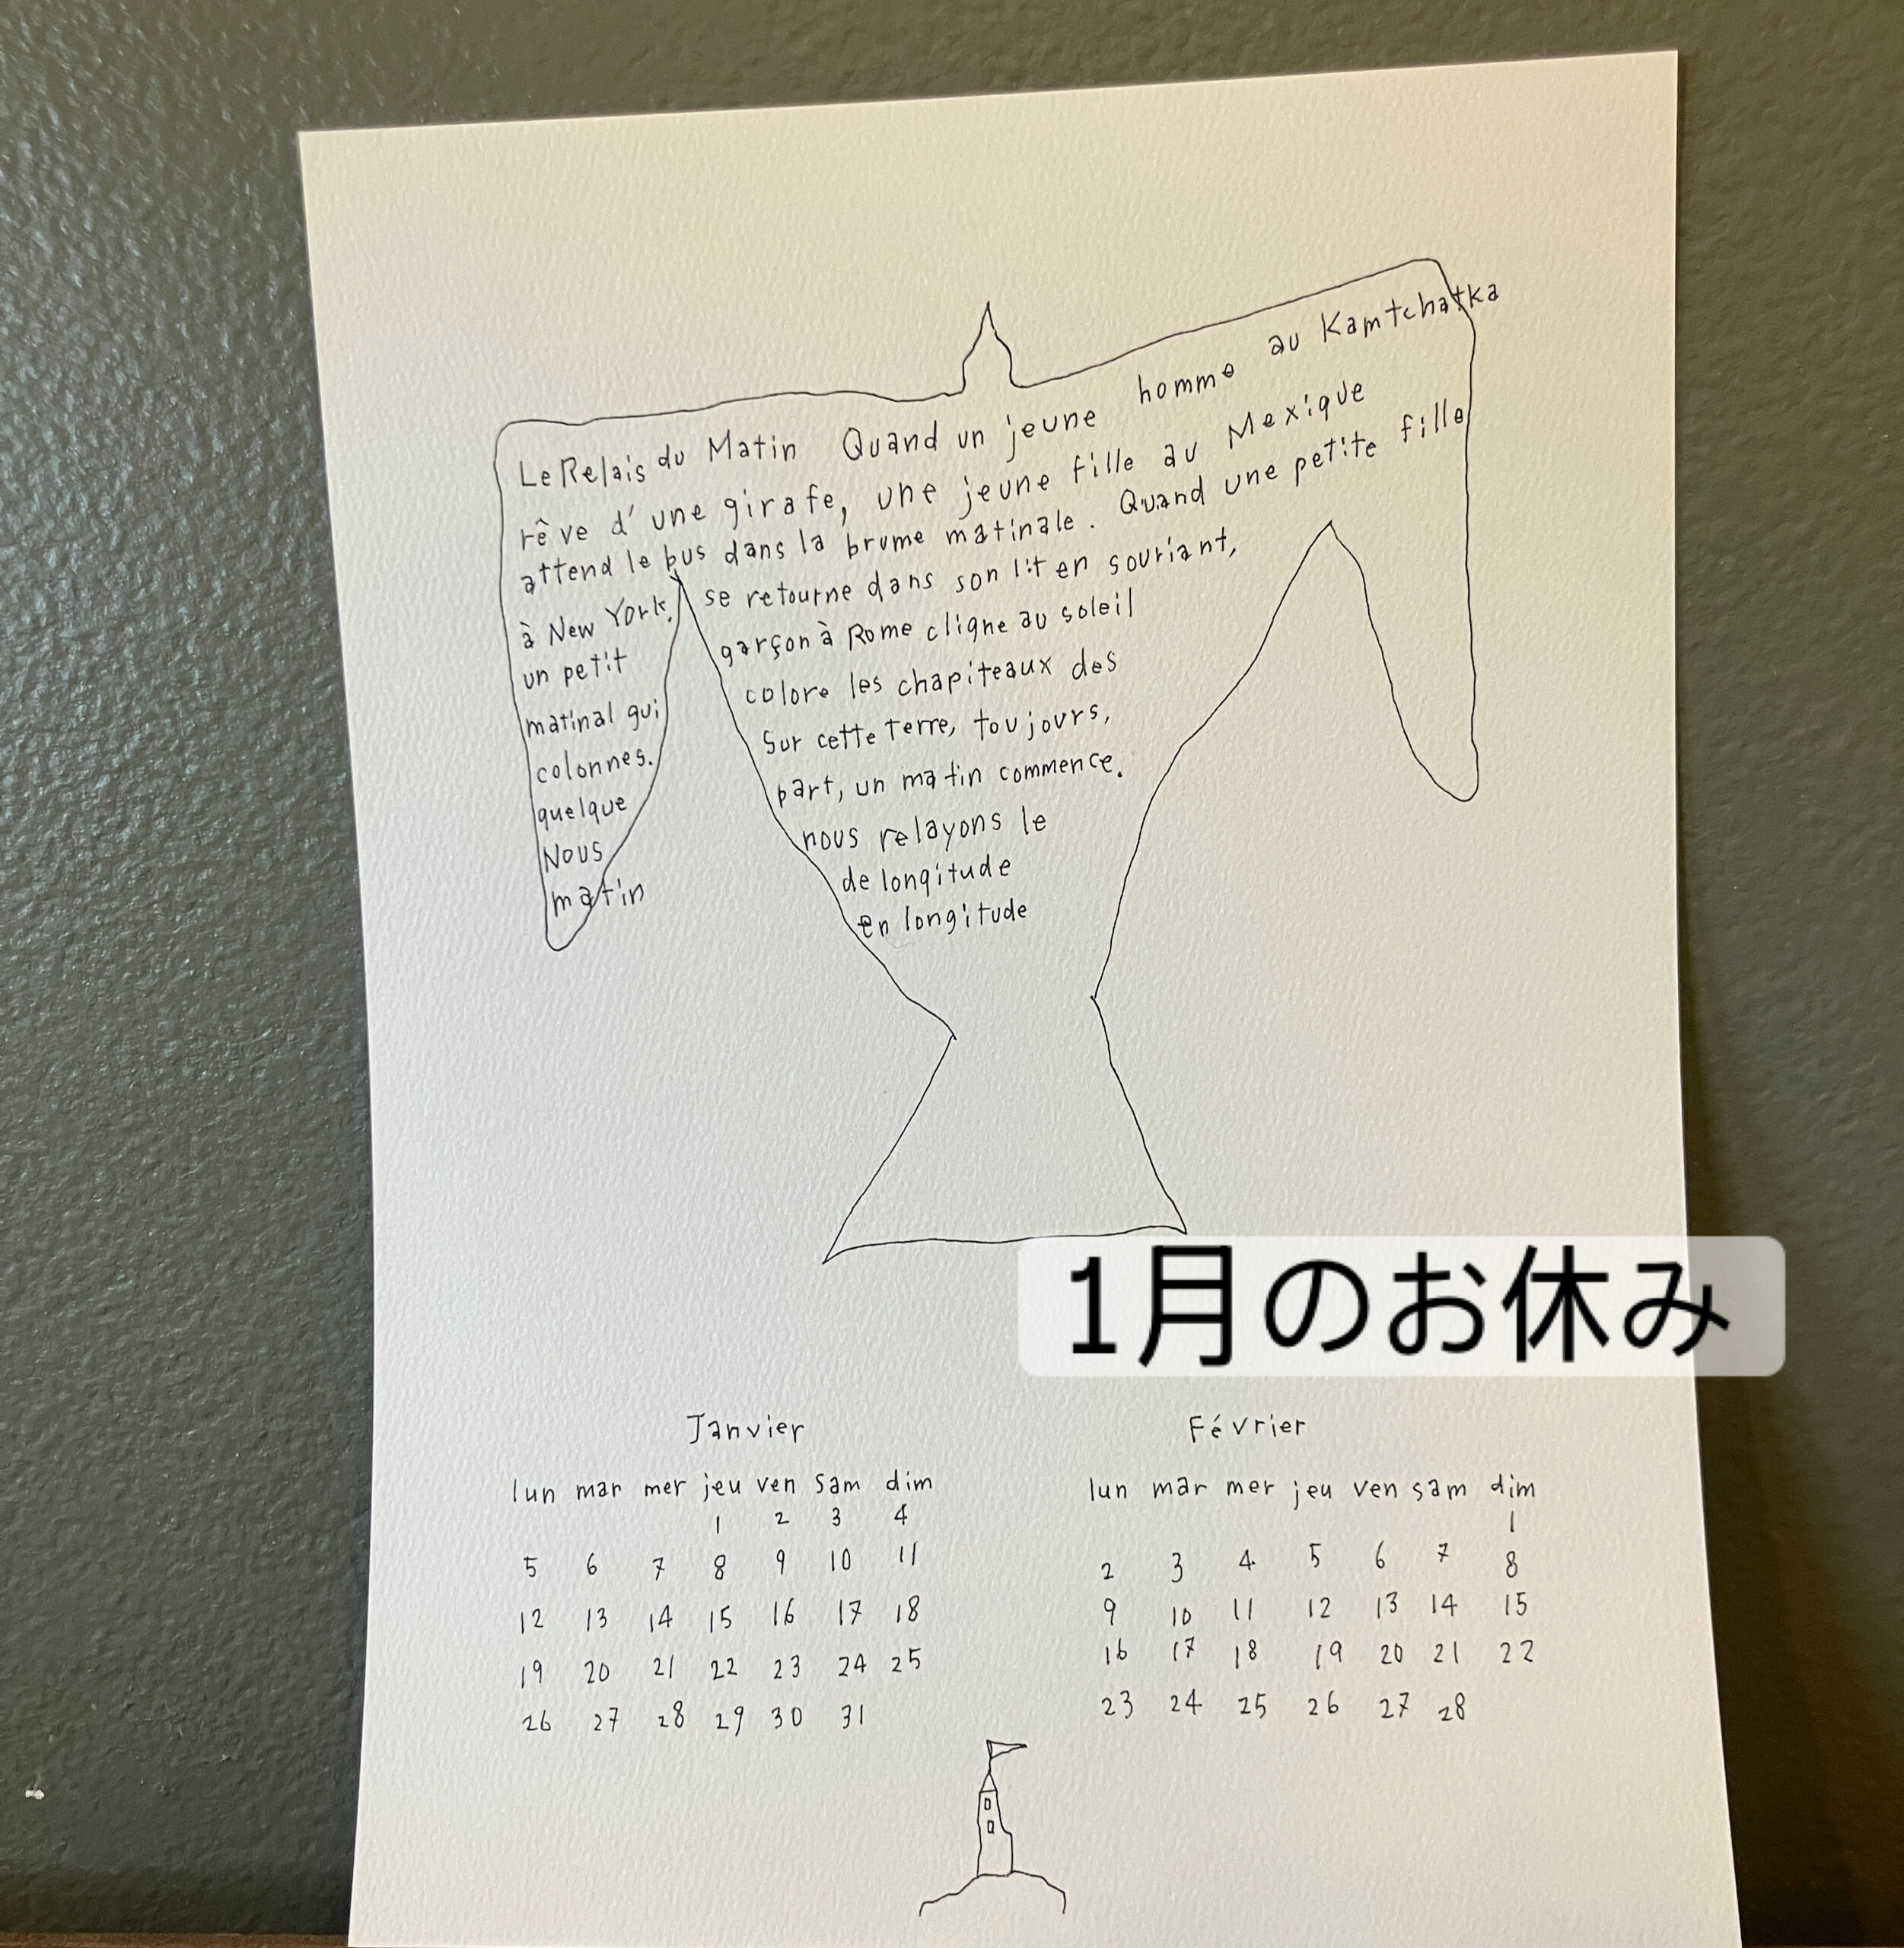 Le Relais du Matin Quand un jeune homme au Kamtchatka
rêve d'une girafe, une jeune fille au Mexique
attend le bus dans la brume matinale. Quand une petite fille
à New York, se retourne dans son lit en souriant,
un petit garçon à Rome cligne au soleil
matinal qui colore les chapiteaux des
colonnes. Sur cette terre, toujours,
quelque part, un matin commence.
Nous nous relayons le
matin de longitude
en longitude
1月のお休み
Janvier
lun mar mer jeu ven sam dim
1 2 3 4
5 6 7 8 9 10 11
12 13 14 15 16 17 18
19 20 21 22 23 24 25
26 27 28 29 30 31
Février
lun mar mer jeu ven sam dim
1
2 3 4 5 6 7 8
9 10 11 12 13 14 15
16 17 18 19 20 21 22
23 24 25 26 27 28